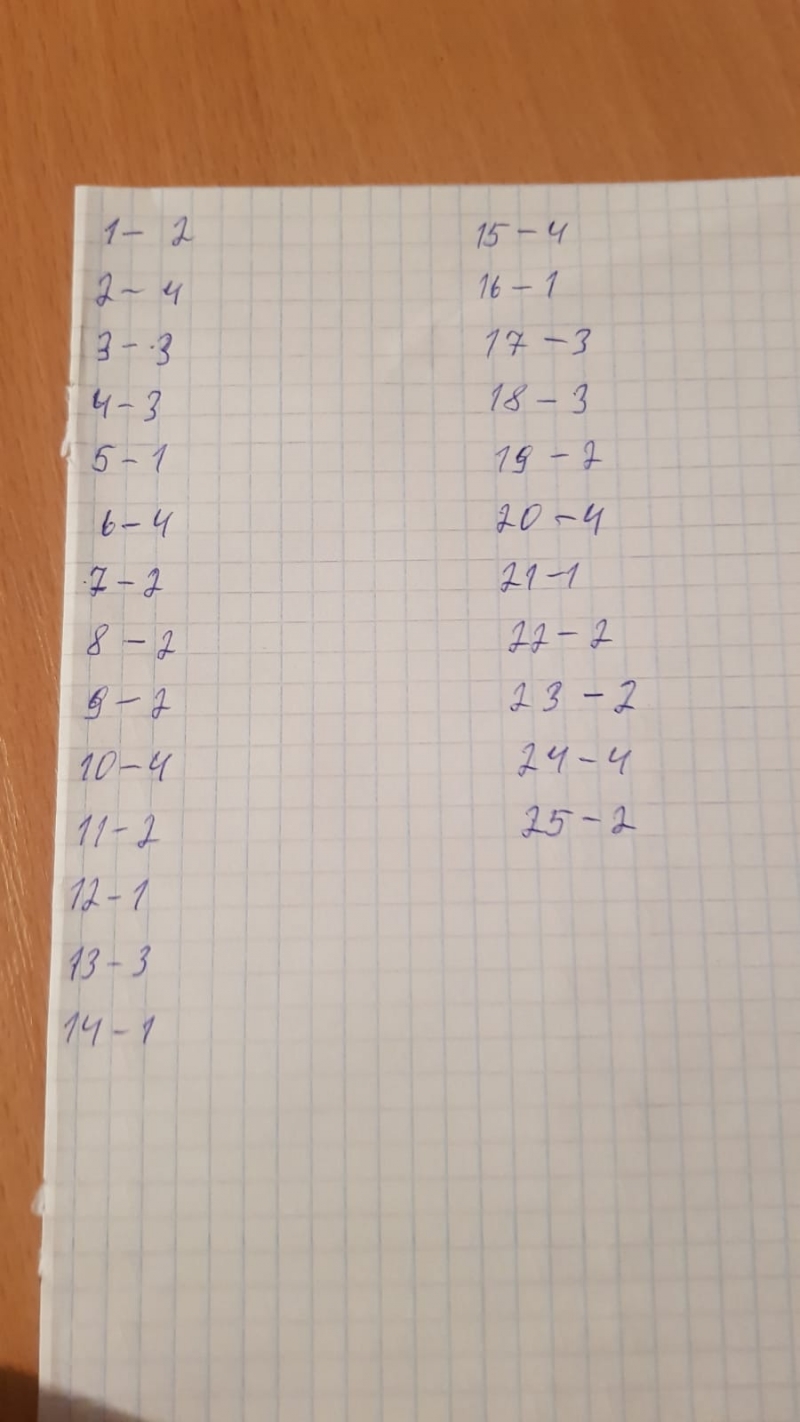 1 - 2
2 - 4
3 - 3
4 - 3
5 - 1
6 - 4
7 - 2
8 - 2
9 - 2
10 - 4
11 - 2
12 - 1
13 - 3
14 - 1
15 - 4
16 - 1
17 - 3
18 - 3
19 - 2
20 - 4
21 - 1
22 - 2
23 - 2
24 - 4
25 - 2